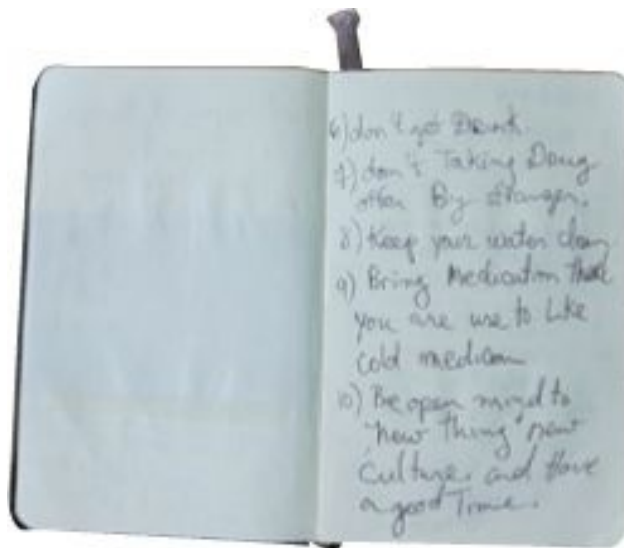 6) don't get Drunk.
7) don't Taking Doug
offer By stranger.
8) Keep your water clean
9) Bring Medication that
you are use to Like
cold medicine
10) Be open mind to
"new Thing" new
Culture and Have
a good Time.